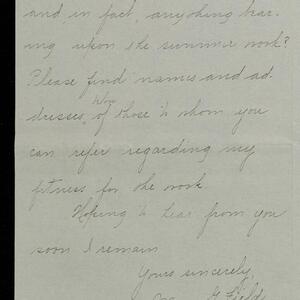 and, in fact, anything bear-
ing upon the summer work?
Please find names and ad-
dresses, of those to whom you
can refer regarding my
fitness for the work.
Hoping to hear from you
soon I remain
Yours sincerely,
G. Field